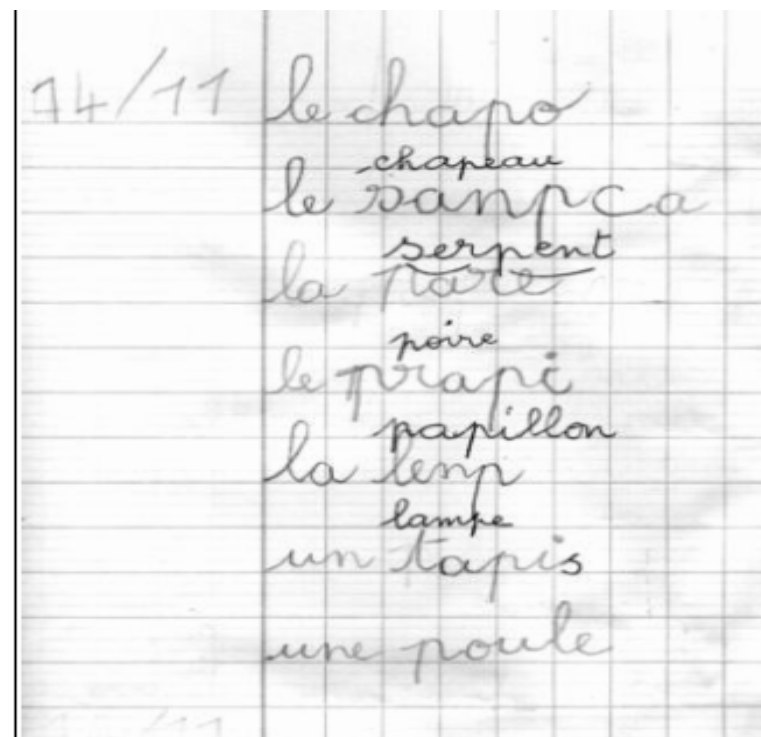 14/11 le chapo
chapeau
le sanpca
serpent
la pare
poire
le prapi
papillon
la lenp
lampe
un tapis
une poule